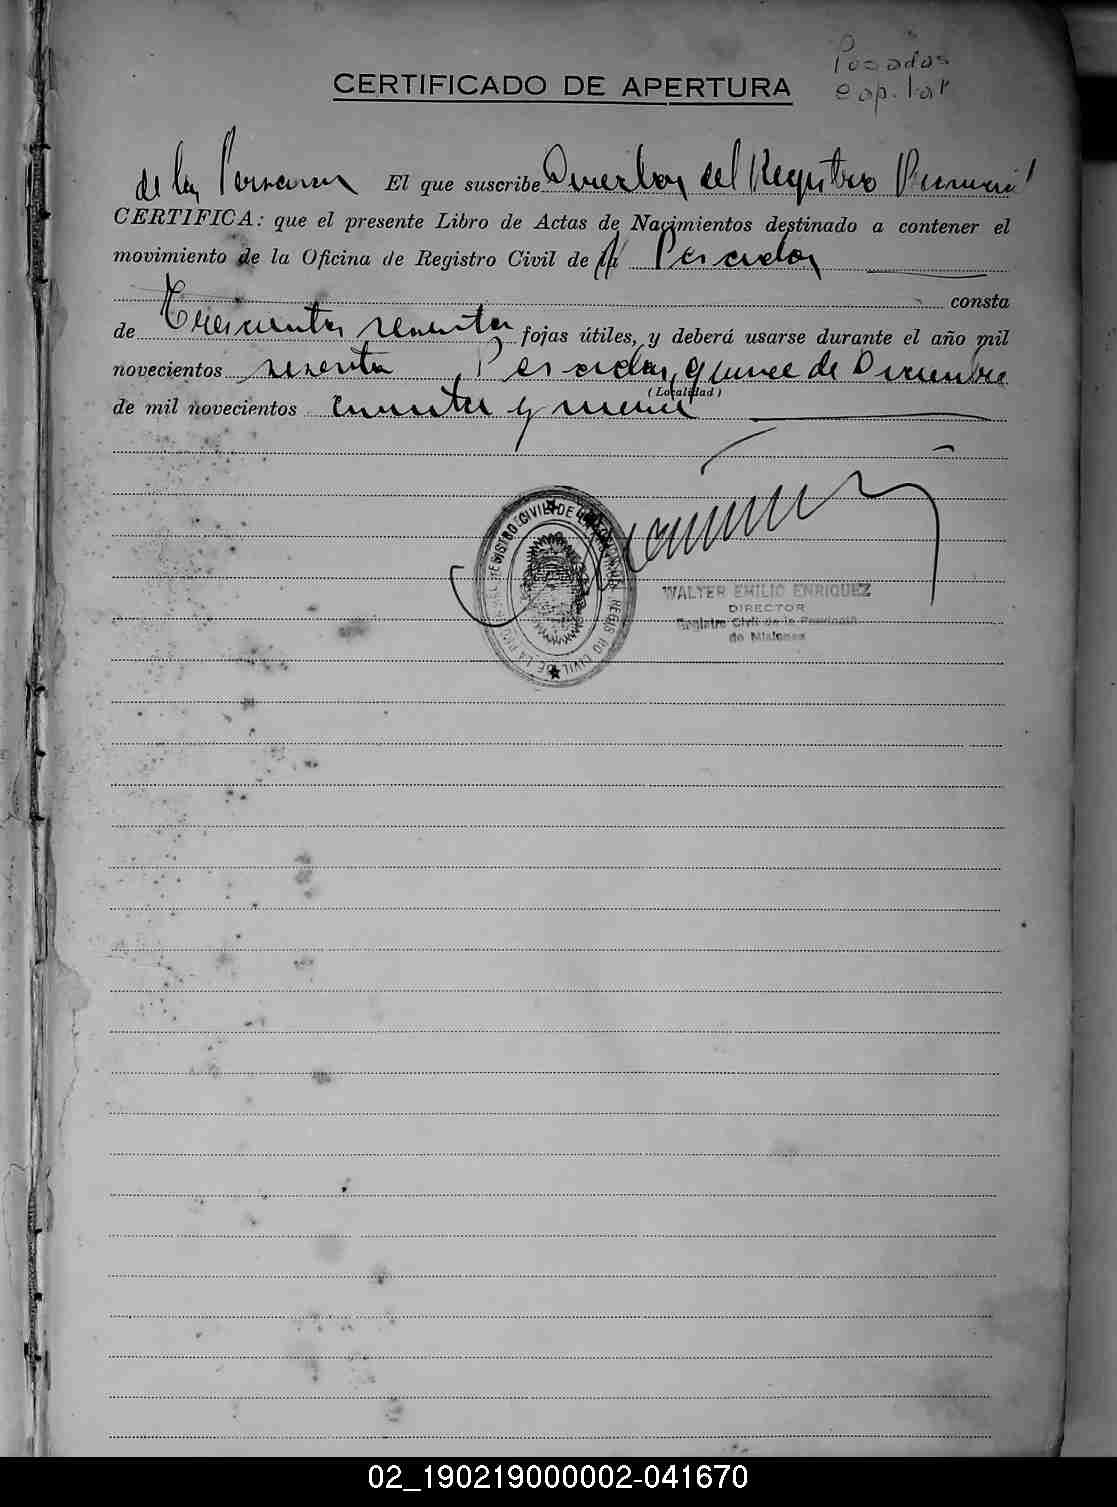 Posadas
CERTIFICADO DE APERTURA
capital
de las Personas El que suscribe Director del Registro Provincial
CERTIFICA: que el presente Libro de Actas de Nacimientos destinado a contener el
movimiento de la Oficina de Registro Civil de la Posadas
consta
de Trescientas sesenta fojas útiles, y deberá usarse durante el año mil
novecientos sesenta Posadas, quince de Diciembre
(Localidad)
de mil novecientos cincuenta y nueve
WALTER EMILIO ENRIQUEZ
DIRECTOR
Registro Civil de la Provincia
de Misiones
02_190219000002-041670